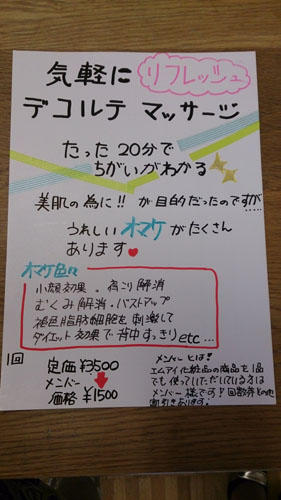 気軽に リフレッシュ
デコルテ マッサージ
たった 20分で
ちがいがわかる
美肌の為に!! が目的だったのですが……
うれしい オマケ がたくさん
あります♥
オマケ色々
小顔効果 。肩こり解消
むくみ解消・バストアップ
褐色脂肪細胞を刺激して
ダイエット効果で背中すっきりetc…
1回
定価 ¥3500
メンバー
価格 ¥1500
メンバーとは!
エムアイ化粧品の商品を1品
でも使っていただいている方は
メンバー様です♡回数券その他
割引きあります。